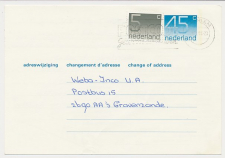 5 c
nederland
45 c
nederland
adreswijziging changement d'adresse change of address
Webo-Inco U.A.
Postbus 15
2690 AA 's Gravenzande